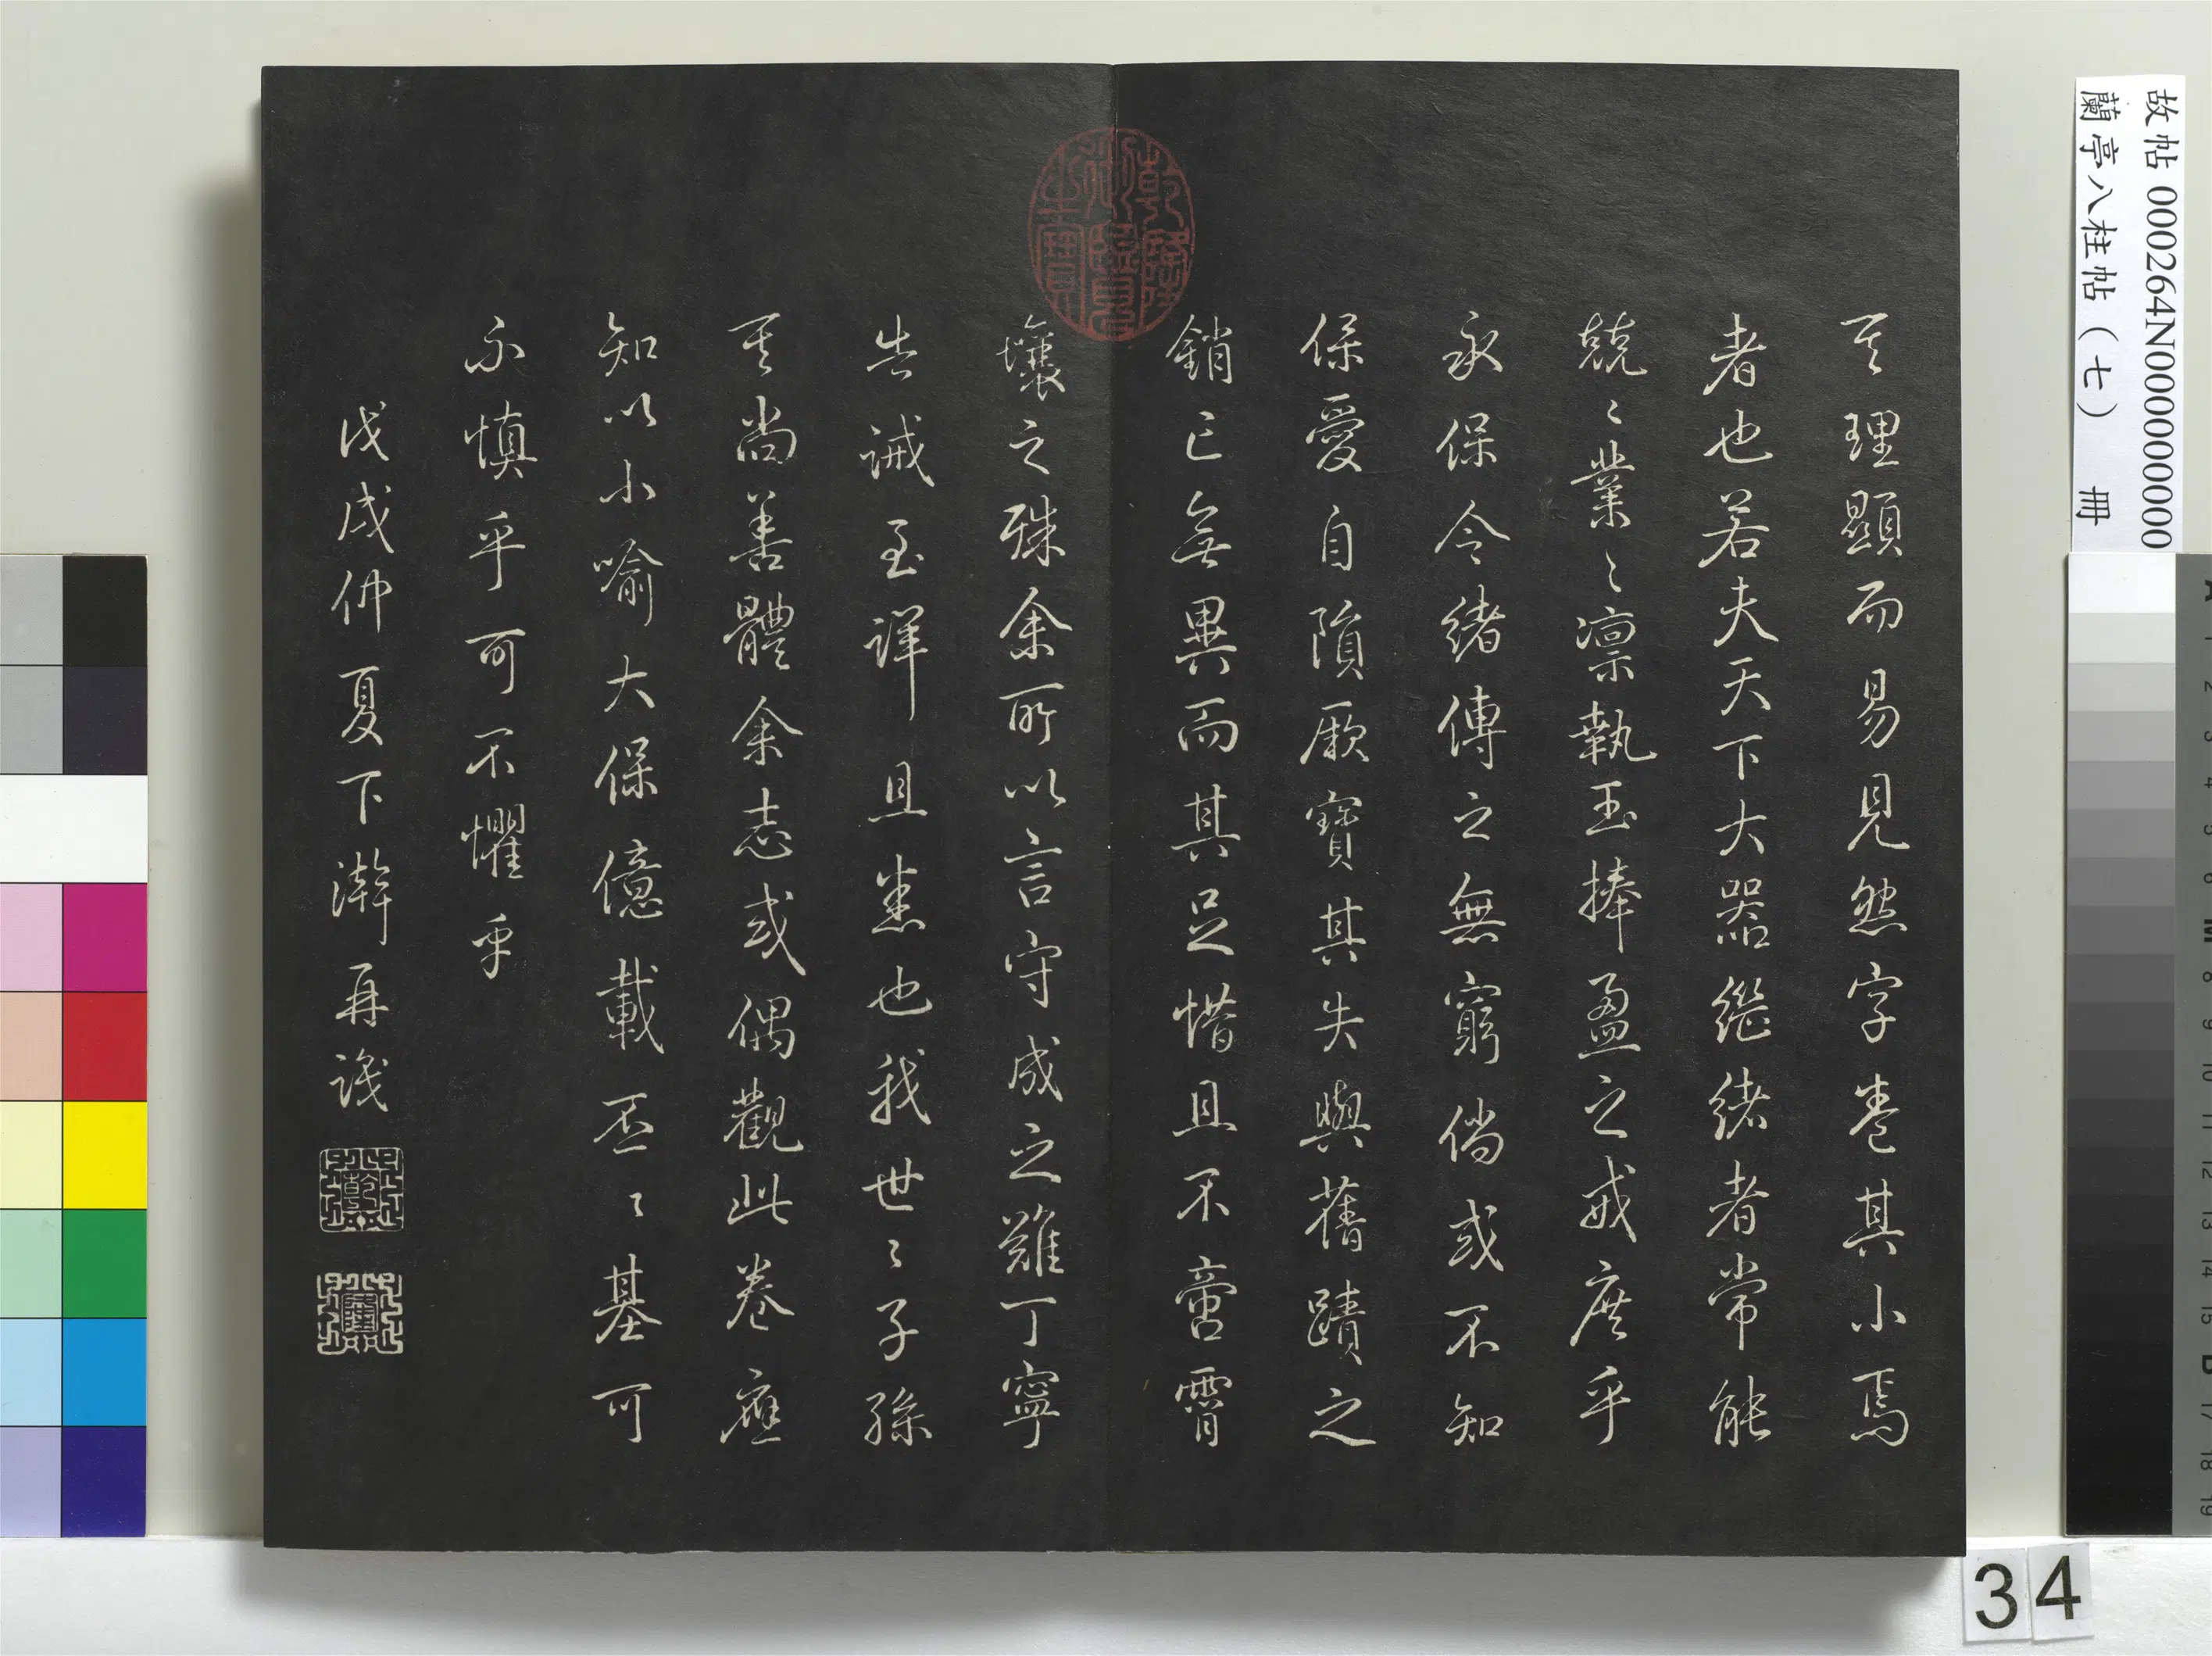 其理顯而易見然字卷其小焉
者也若夫天下大器繼緒者常能
兢〻業〻凛執玉捧盈之戒庶乎
永保令緒傳之無窮倘或不知
保愛自隕厥寶其失與舊蹟之
銷亡無異而其足惜且不啻霄
壤之殊余所以言守成之難丁寧
告誡至詳且悉也我世〻子孫
其尚善體余志或偶觀此卷應
知以小喻大保億載丕〻基可
不慎乎可不懼乎
戊戌仲夏下澣再識
乾
隆
乾隆御覽之寶
故帖 000264N000000000
蘭亭八柱帖（七） 冊
34